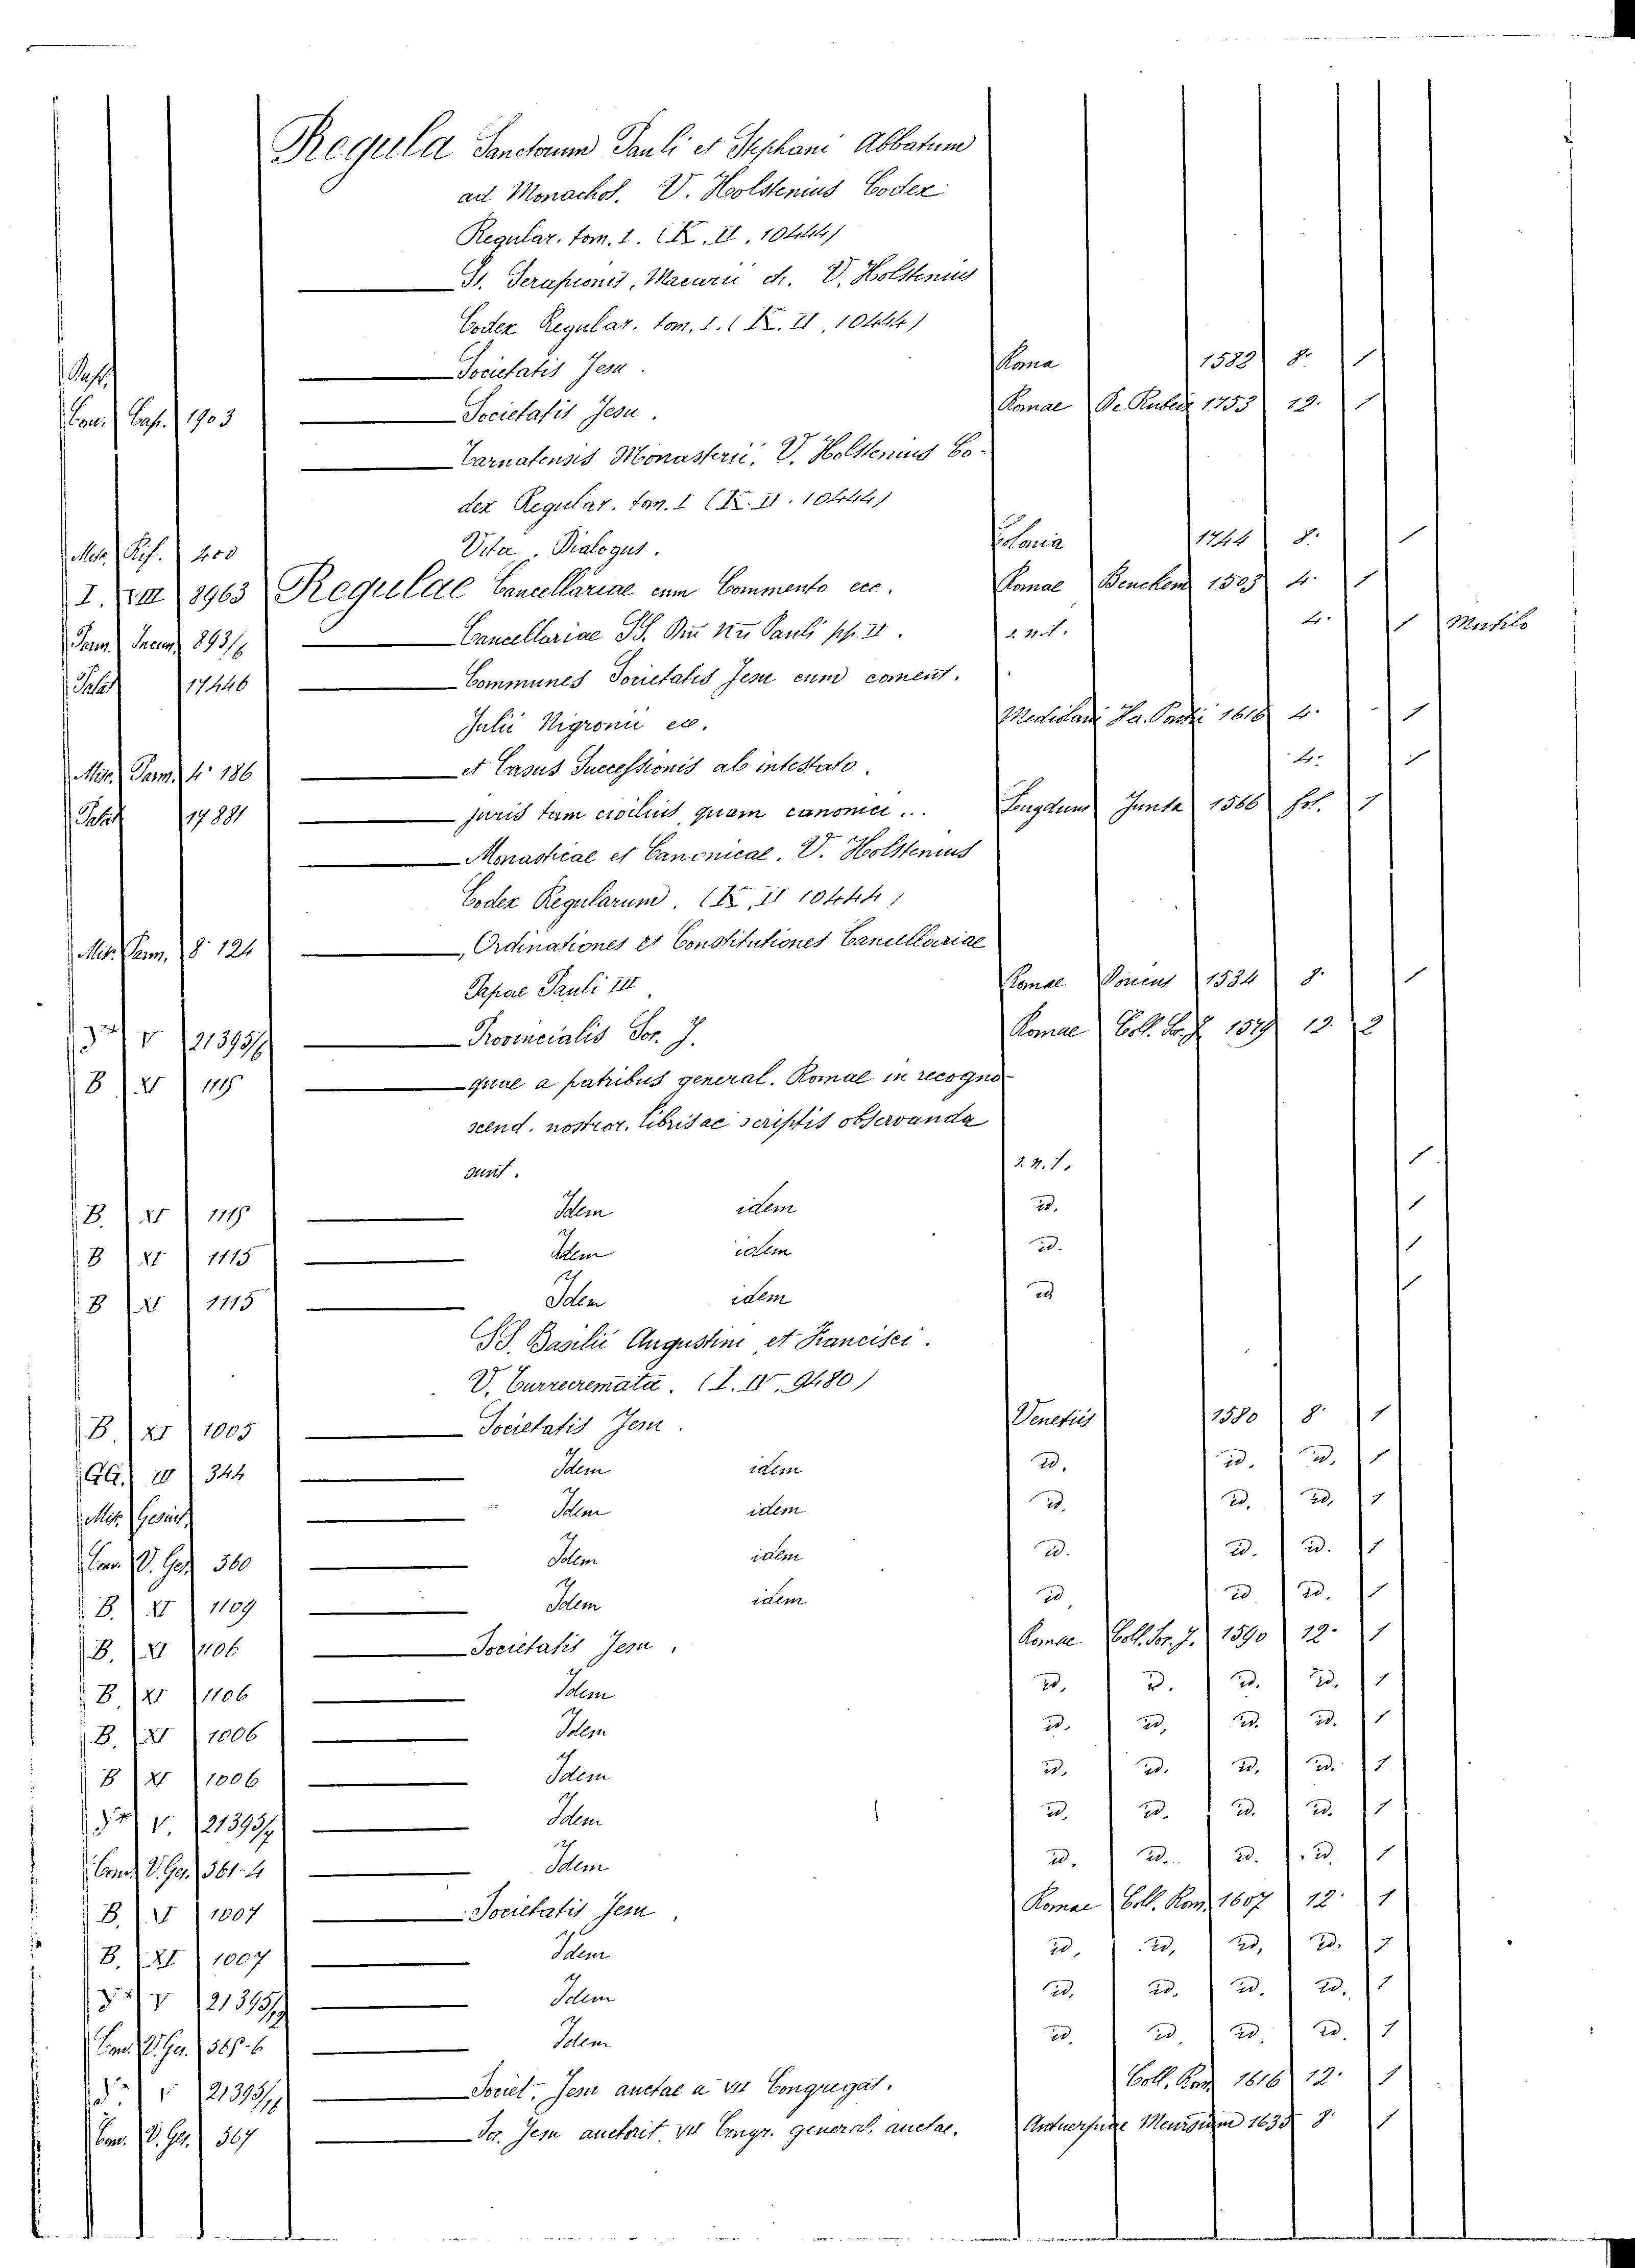 Regula Sanctorum Pauli et Stephani Abbatum
ad Monachos. V. Holstenius Codex
Regular. tom. 1. (K. II. 10444)
Ss. Serapionis, Macarii etc. V. Holstenius
Codex Regular. tom. 1. (K. II. 10444)
Societatis Jesu. Roma 1582 8. 1
Con. Cap. 1903 Societatis Jesu. Romae De Rubeis 1753 12. 1
Tarnatensis Monasterii. V. Holstenius Co-
dex Regular. tom. 1 (K. II. 10444)
Misc. Rif. 400 Vita, Dialogus. Colonia 1744 8. 1
I. VIII 8963 Regulae Cancellariae cum Commento ecc. Romae 1505 4. 1
Parm. Incun. 893/6 Cancellariae SS. Pauli pp. II. s.n.t. 4. 1 Mutilo
Palat 17446 Communes Societatis Jesu cum coment.
Julii Nigronii ec. Mediolani 1616 4. 1
Misc. Parm. 4° 186 et Casus Successionis ab intestato. 4. 1
Palat 17881 juris tam civilius, quam canonici... Lugduni Junta 1566 fol. 1
Monasticae et Canonicae. V. Holstenius
Codex Regularum. (K. II 10444)
Misc. Parm. 8° 124 Ordinationes et Constitutiones Cancellariae
Papae Pauli III Romae 1534 8. 1
V 21395/6 Provincialis Soc. J. Romae Coll. Soc. J. 1579 12. 2
B XI 1115 quae a patribus general. Romae in recogno-
scend. nostror. libris ac scriptis observanda
sunt. s.n.t. 1
B. XI 1115 Idem idem id. 1
B XI 1115 Idem idem id. 1
B XI 1115 Idem idem id 1
SS. Basilii Augustini et Francisci.
V. Turrecremata. (I. IV. 9480)
B. XI 1005 Societatis Jesu. Venetiis 1580 8. 1
GG. III 344 Idem idem id. id. id. 1
Misc. Gesuit. Idem idem id. id. id. 1
Conv. V. Ges. 560 Idem idem id. id. id. 1
B. XI 1109 Idem idem id. id. id. 1
B. XI 1106 Societatis Jesu. Romae Coll. Soc. J. 1590 12. 1
B. XI 1106 Idem id. id. id. id. 1
B. XI 1006 Idem id. id. id. id. 1
B XI 1006 Idem id. id. id. id. 1
V. 21395/7 Idem id. id. id. id. 1
Conv. V. Ges. 561-4 Idem id. id. id. id. 1
B. XI 1007 Societatis Jesu, Romae Coll. Rom. 1607 12. 1
B. XI 1007 Idem id. id. id. id. 1
V 21395/9 Idem id. id. id. id. 1
Conv. V. Ges. 565-6 Idem id. id. id. id. 1
V 21395/11 Societ. Jesu auctae a VII Congregat. Coll. Rom. 1616 12. 1
Conv. V. Ges. 567 Soc. Jesu auctorit. VII Congr. general. auctae. Antuerpiae Meursium 1635 8. 1